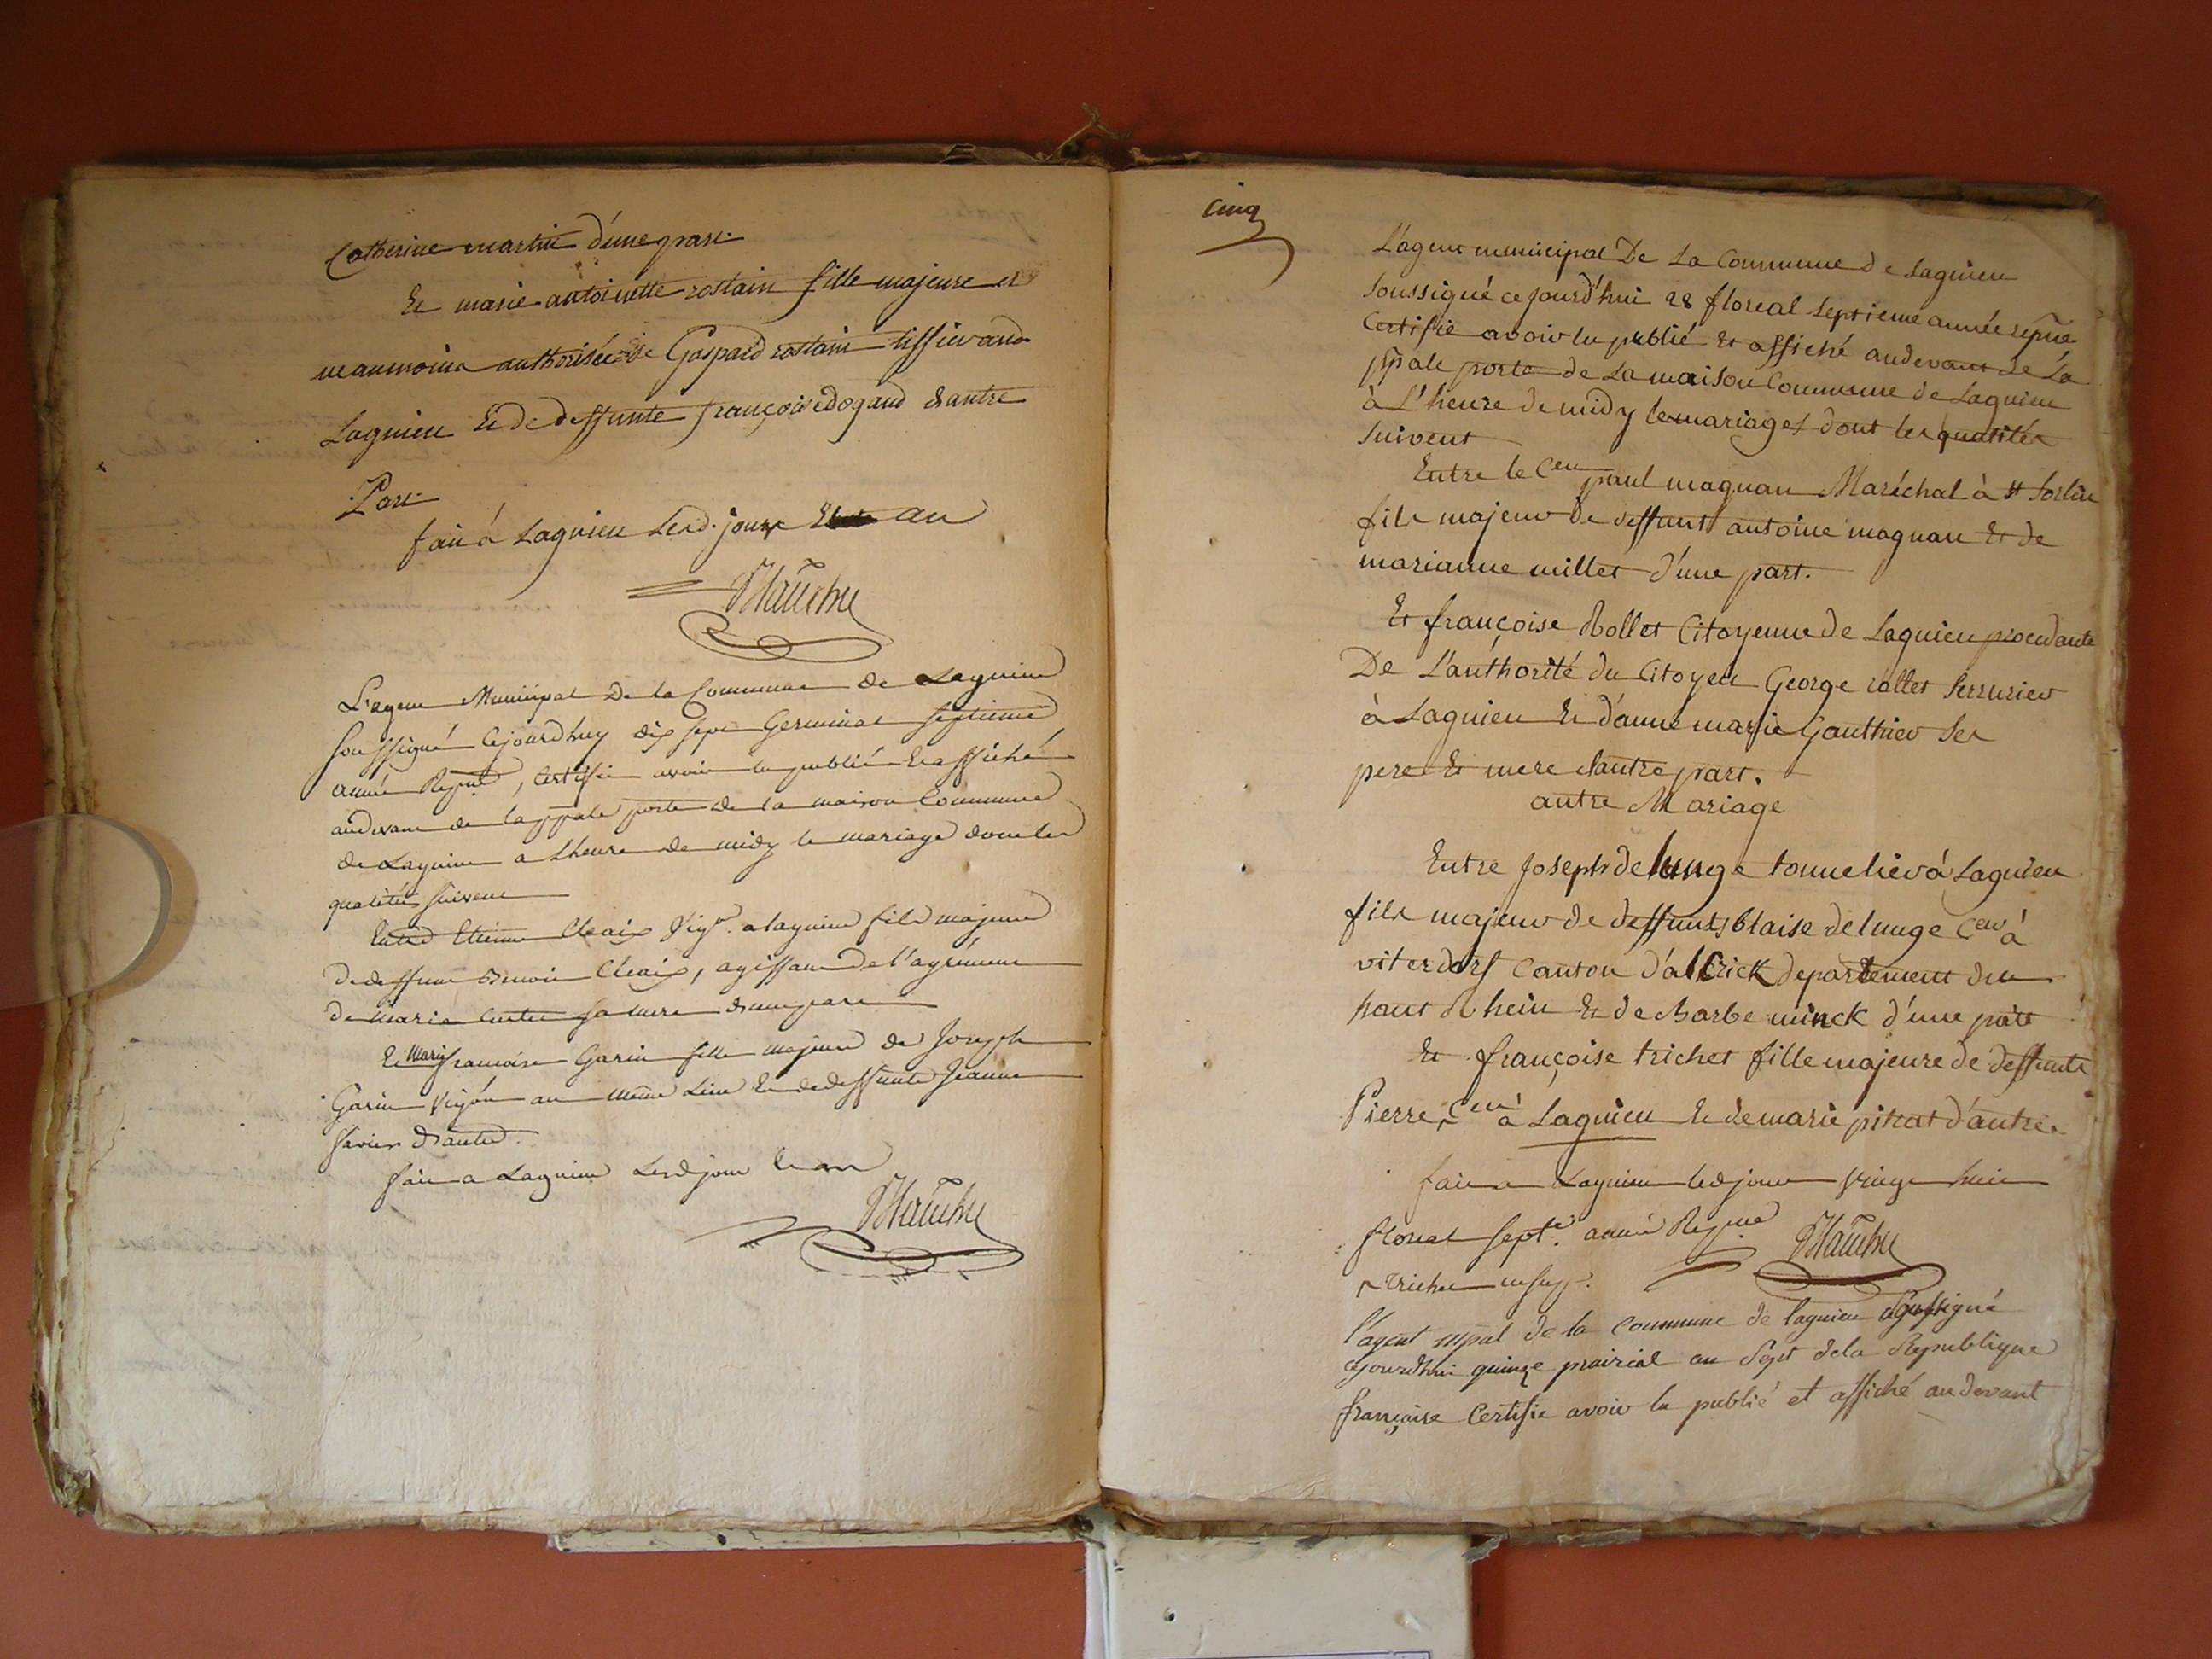 Catherine martin d'une part.
Et marie antoinette rostain fille majeure et
neanmoins authorisée de Gaspard rostain tissier aud.
Lagnieu Et de deffunte françoise dogaud d'autre
Part.
fait à Lagnieu Lesd. jour Et an
L'agent Municipal De la Commune de Lagnieu
soussigné Cejourdhuy dix sept Germinal septieme
année Repne, Certifie avoir lu publié Et affiché
audevant de la ppale porte de la maison Commune
de Lagnieu a Lheure de midy le mariage dont les
qualités suivent
Entre Etienne Chaix Vigr. a lagnieu fils majeur
de deffunt Benoit Chaix, agissant de l'agrément
de Marie sa mere d'une part
Et Marie francoise Garin fille majeure de Joseph
Garin Vigon au même Lieu Et de deffunte Jeanne
d'autre.
fait a Lagnieu Lesd jour Et an
Cinq
L'agent municipal De La Commune de Lagnieu
soussigné ce jourd'hui 28 floreal septieme année repne.
Certifie avoir lu publié Et affiché audevant de La
ppale porte de La maison Commune de Lagnieu
à L'heure de midy les mariages dont les qualités
suivent
Entre le Cen paul magnan Maréchal à St Sorlin
fils majeur de deffunt antoine magnan Et de
marianne millet d'une part.
Et françoise Rollet Citoyenne de Lagnieu procedante
De L'authorité du Citoyen George rollet serrurier
à Lagnieu Et d'anne marie Gauthier ses
pere Et mere d'autre part.
autre Mariage
Entre Joseph delunge tonnelier à Lagnieu
fils majeur de deffunts blaise delunge Cen à
viterdorf Canton d'altkick departement du
haut Rhein Et de Barbe minck d'une part
Et françoise trichet fille majeure de deffunts
Pierre, Cen à Lagnieu Et de marie pitrat d'autre.
fait a Lagnieu led jour vingt huit
floreal Sept.e année Repne
trichet
l'agent mpal de la Commune de lagnieu soussigné
cejourdhui quinze prairial an Sept dela Republique
française Certifie avoir lu publié et affiché audevant